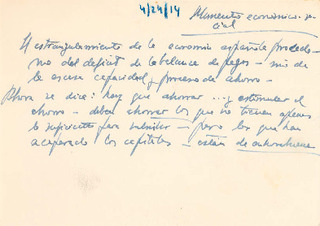 4/24/14
Momento económico-so-
cial
El estrangulamiento de la economía española procede –
no del déficit de la balanza de pagos – sino de
la escasa capacidad y proceso de ahorro –
Ahora se dice: hay que ahorrar ... y estimular el
ahorro – deben ahorrar los que no tienen apenas
lo suficiente para subsistir – pero los que han
acaparado los capitales – están de enhorabuena